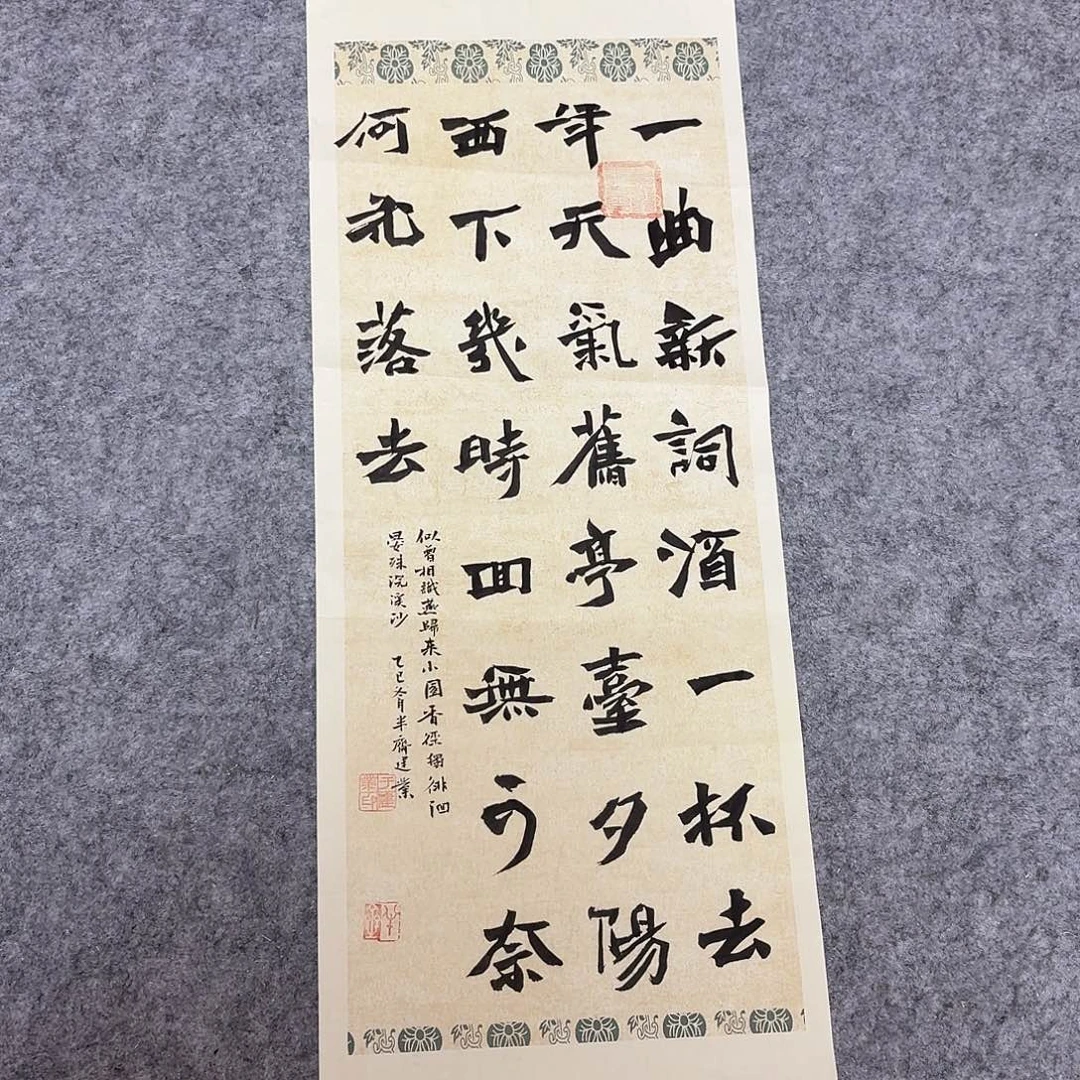 一曲新詞酒一杯去
年天氣舊亭臺夕陽
西下幾時回無可奈
何花落去
似曾相識燕歸来小園香徑獨徘徊
晏殊浣溪沙 乙巳冬月半齋建業